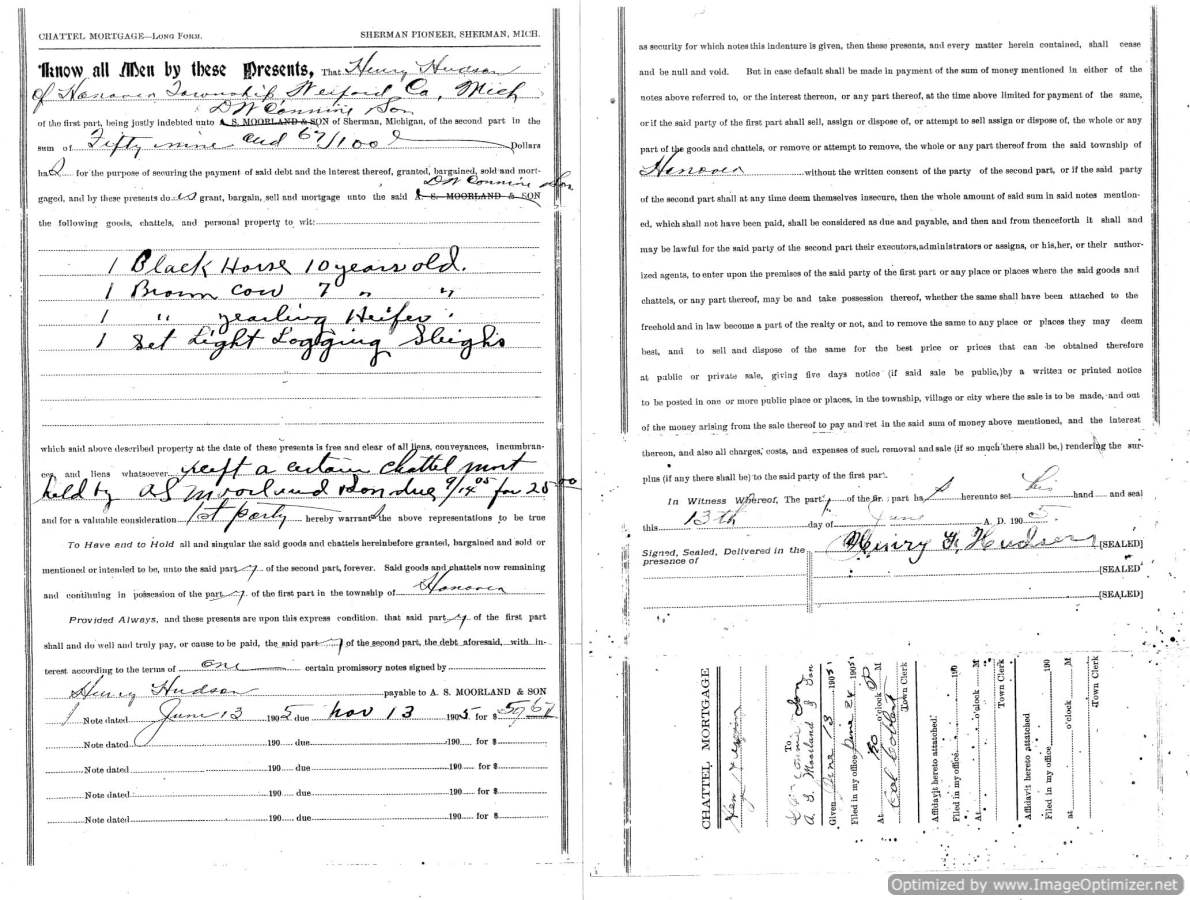 CHATTEL MORTGAGE—LONG FORM. SHERMAN PIONEER, SHERMAN, MICH.
Know all Men by these Presents, That Henry Hudson
of Hanover Township Wexford Co, Mich
D W Connine Son
of the first part, being justly indebted unto A. S. MOORLAND & SON of Sherman, Michigan, of the second part in the
sum of Fifty nine and 67/100 Dollars
ha for the purpose of securing the payment of said debt and the interest thereof, granted, bargained, sold and mort-
D W Connine Son
gaged, and by these presents do es grant, bargain, sell and mortgage unto the said A. S. MOORLAND & SON
the following goods, chattels, and personal property to wit:
1 Black Horse 10 years old.
1 Brown Cow 7 " "
1 " yearling Heifer
1 Set Light Logging Sleighs
which said above described property at the date of these presents is free and clear of all liens, conveyances, incumbran-
ces, and liens whatsoever, a certain chattel mort
held by AS Moorland Son due 9/14 05 for 25 00
and for a valuable consideration 1st party hereby warrant the above representations to be true
To Have end to Hold all and singular the said goods and chattels hereinbefore granted, bargained and sold or
mentioned or intended to be, unto the said part y of the second part, forever. Said goods and chattels now remaining
and continuing in possession of the part y of the first part in the township of Hanover
Provided Always, and these presents are upon this express condition. that said part y of the first part
shall and do well and truly pay, or cause to be paid, the said part y of the second part, the debt aforesaid, with in-
terest according to the terms of one certain promissory notes signed by
Henry Hudson payable to A. S. MOORLAND & SON
1 Note dated June 13 1905 due Nov 13 1905 for $ 59 67
Note dated 190 due 190 for $
Note dated 190 due 190 for $
Note dated 190 due 190 for $
Note dated 190 due 190 for $
as security for which notes this indenture is given, then these presents, and every matter herein contained, shall cease
and be null and void. But in case default shall be made in payment of the sum of money mentioned in either of the
notes above referred to, or the interest thereon, or any part thereof, at the time above limited for payment of the same,
or if the said party of the first part shall sell, assign or dispose of, or attempt to sell assign or dispose of, the whole or any
part of the goods and chattels, or remove or attempt to remove, the whole or any part thereof from the said township of
Hanover without the written consent of the party of the second part, or if the said party
of the second part shall at any time deem themselves insecure, then the whole amount of said sum in said notes mention-
ed, which shall not have been paid, shall be considered as due and payable, and then and from thenceforth it shall and
may be lawful for the said party of the second part their executors,administrators or assigns, or his,her, or their author-
ized agents, to enter upon the premises of the said party of the first part or any place or places where the said goods and
chattels, or any part thereof, may be and take possession thereof, whether the same shall have been attached to the
freehold and in law become a part of the realty or not, and to remove the same to any place or places they may deem
best, and to sell and dispose of the same for the best price or prices that can be obtained therefore
at public or private sale, giving five days notice (if said sale be public,)by a written or printed notice
to be posted in one or more public place or places, in the township, village or city where the sale is to be made, and out
of the money arising from the sale thereof to pay and ret in the said sum of money above mentioned, and the interest
thereon, and also all charges, costs, and expenses of such removal and sale (if so much there shall be,) rendering the sur-
plus (if any there shall be) to the said party of the first part.
In Witness Whereof, The party of the first part ha s hereunto set his hand and seal
this 13th day of June A. D. 1905.
Signed, Sealed, Delivered in the
presence of
Henry F. Hudson [SEALED]
[SEALED]
[SEALED]
CHATTEL MORTGAGE
To
A. S. Moorland & Son
Given June 13 1905
Filed in my office June 24 1905
At o'clock P M
Town Clerk
Affidavit hereto attatched.
Filed in my office 190
At o'clock M
Town Clerk
Affidavit hereto attatched
Filed in my office 190
at o'clock M
Town Clerk
Optimized by www.ImageOptimizer.net